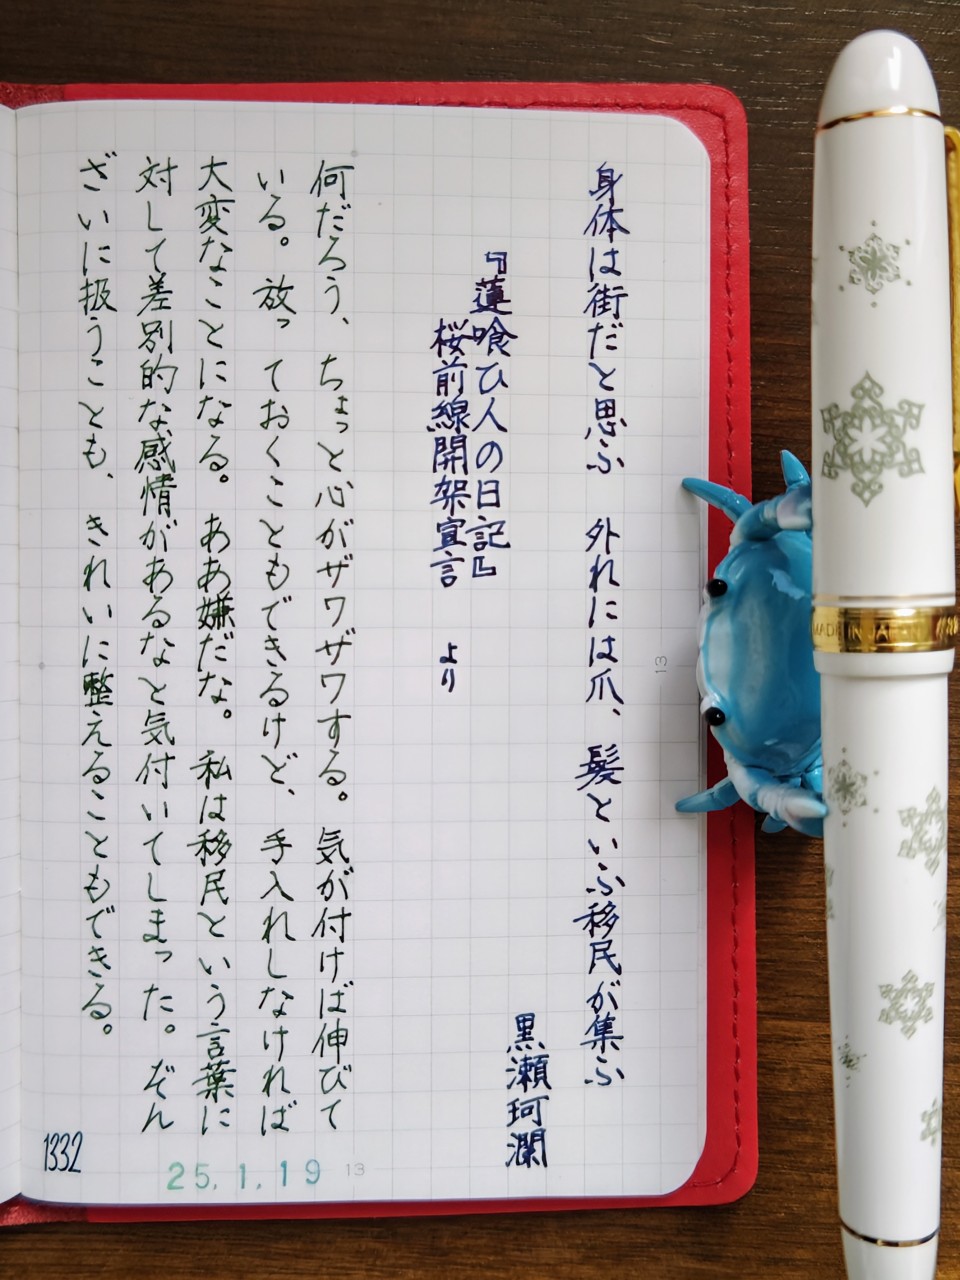 身体は街だと思ふ　外れには爪、髪といふ移民が集ふ
黒瀬珂瀾
『蓮喰ひ人の日記』
桜前線開架宣言　より
何だろう、ちょっと心がザワザワする。気が付けば伸びて
いる。放っておくこともできるけど、手入れしなければ
大変なことになる。ああ嫌だな。私は移民という言葉に
対して差別的な感情があるなと気付いてしまった。ぞん
ざいに扱うことも、きれいに整えることもできる。
1332
25.1.19
13
13
MADE IN JAPAN